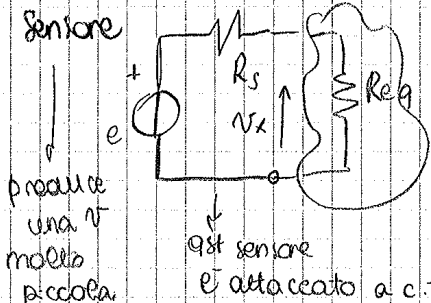 Sensore
+
e
Rs
vx
Req
produce
una v
molto
piccola
qst sensore
è attaccato a c.